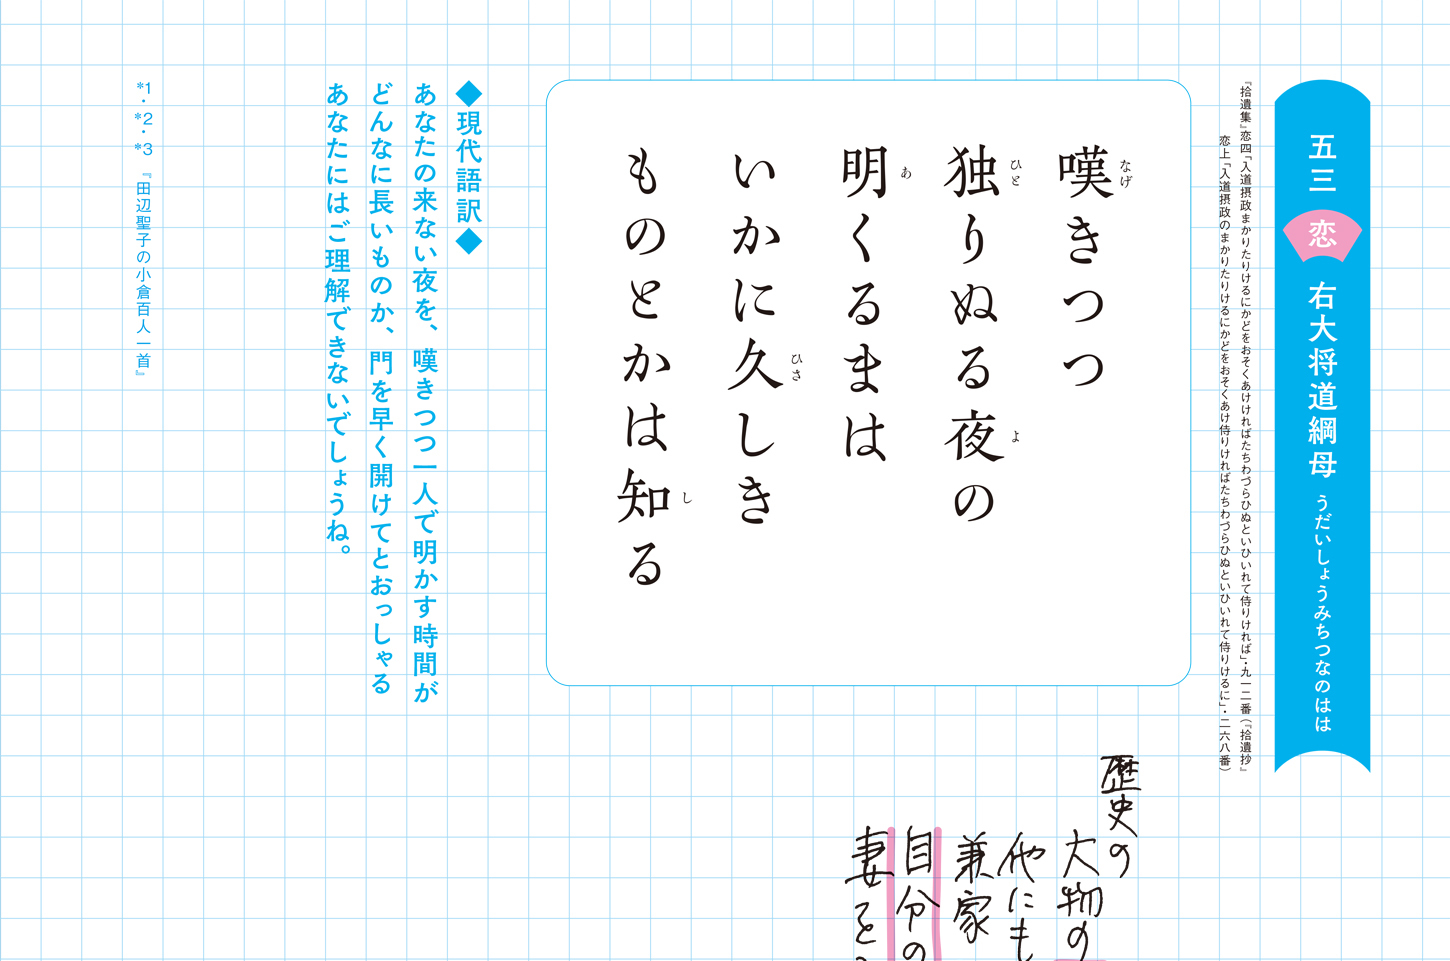 五三 恋 右大将道綱母 うだいしょうみちつなのはは
『拾遺集』恋四「入道摂政まかりたりけるにかどをおそくあけければたちわづらひぬといひいれて侍りければ」・九一二番（『拾遺抄』
恋上「入道摂政のまかりたりけるにかどをおそくあけ侍りければたちわづらひぬといひいれて侍りけるに」・二六八番）
嘆きつつ
なげ
独りぬる夜の
ひと よ
明くるまは
あ
いかに久しき
ひさ
ものとかは知る
し
◆現代語訳◆
あなたの来ない夜を、嘆きつつ一人で明かす時間が
どんなに長いものか、門を早く開けてとおっしゃる
あなたにはご理解できないでしょうね。
*1・*2・*3 『田辺聖子の小倉百人一首』
歴史の
大物の
他にも
兼家
自分の
妻を